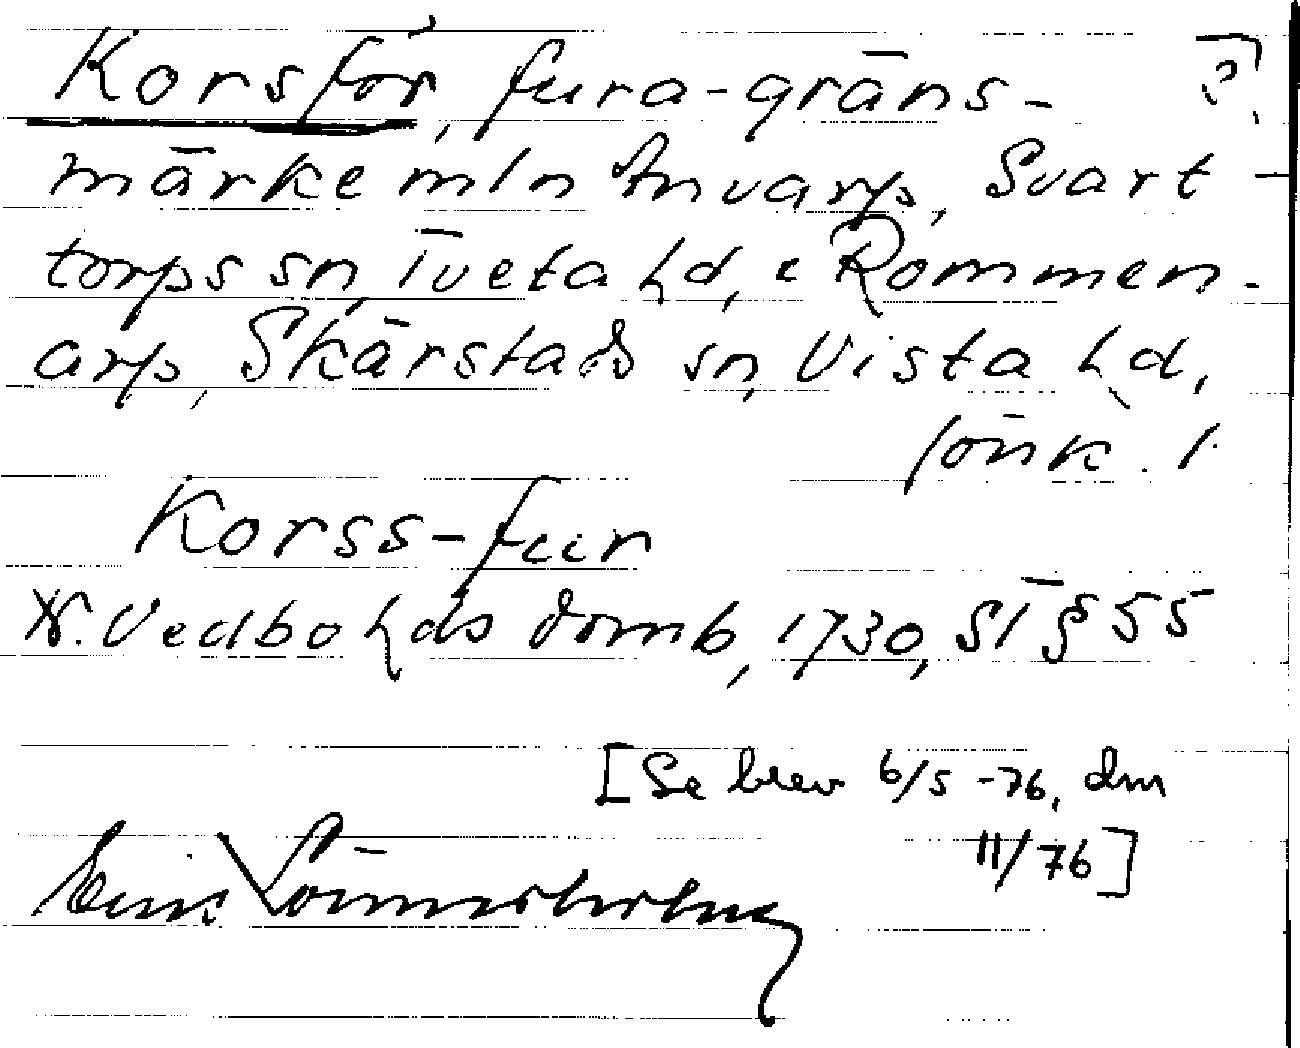 Korsför, fura-gräns- [?]
märke mln Änvarp, Svart-
torps sn, Tveta hd, o Rommen-
arp, Skärstads sn, Vista hd,
Jönk. l.
Korss-fur
N. Vedbo hds domb, 1730, ST § 55
[Se brev 6/5 -76, dnr
11/76]